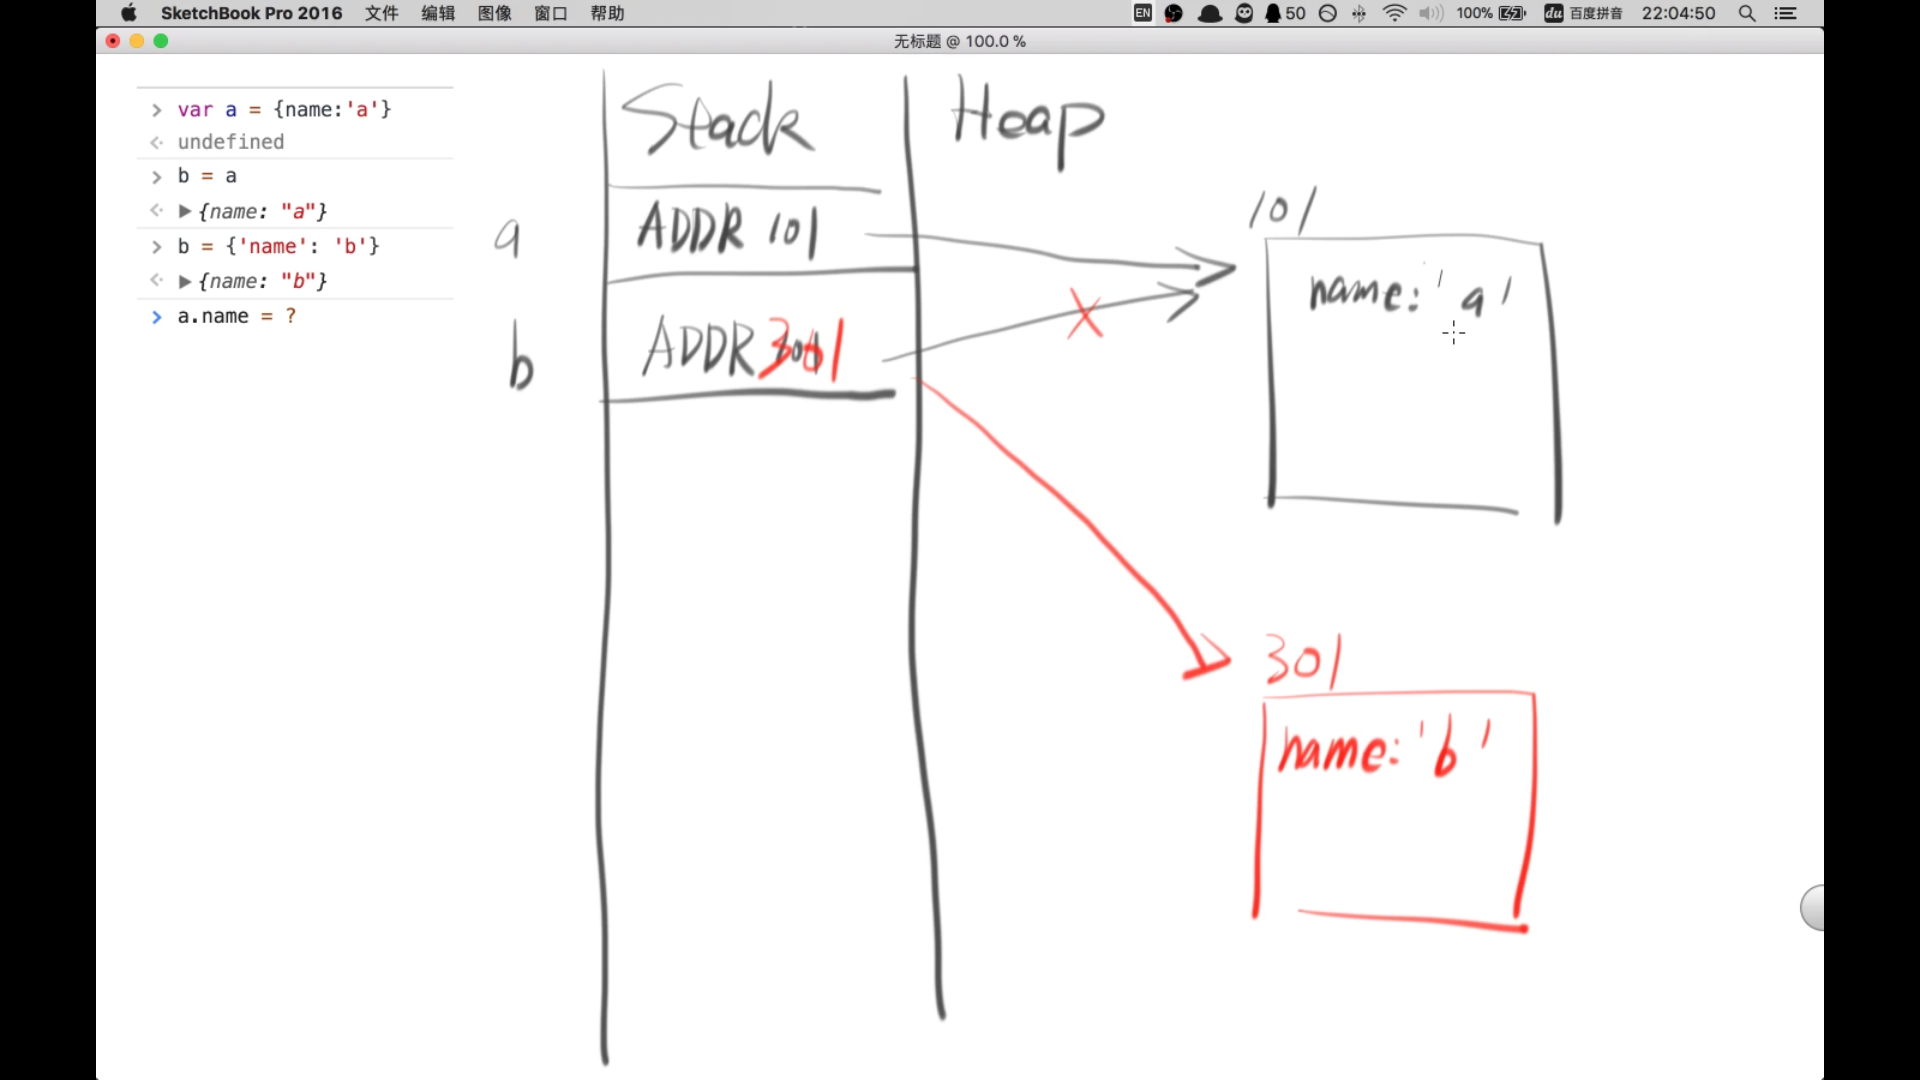 SketchBook Pro 2016 文件 编辑 图像 窗口 帮助 EN 50 100% du 百度拼音 22:04:50
无标题 @ 100.0 %
> var a = {name:'a'}
undefined
> b = a
{name: "a"}
> b = {'name': 'b'}
{name: "b"}
> a.name = ?
Stack
Heap
a
ADDR 101
101
name: 'a'
b
ADDR 301
301
name: 'b'